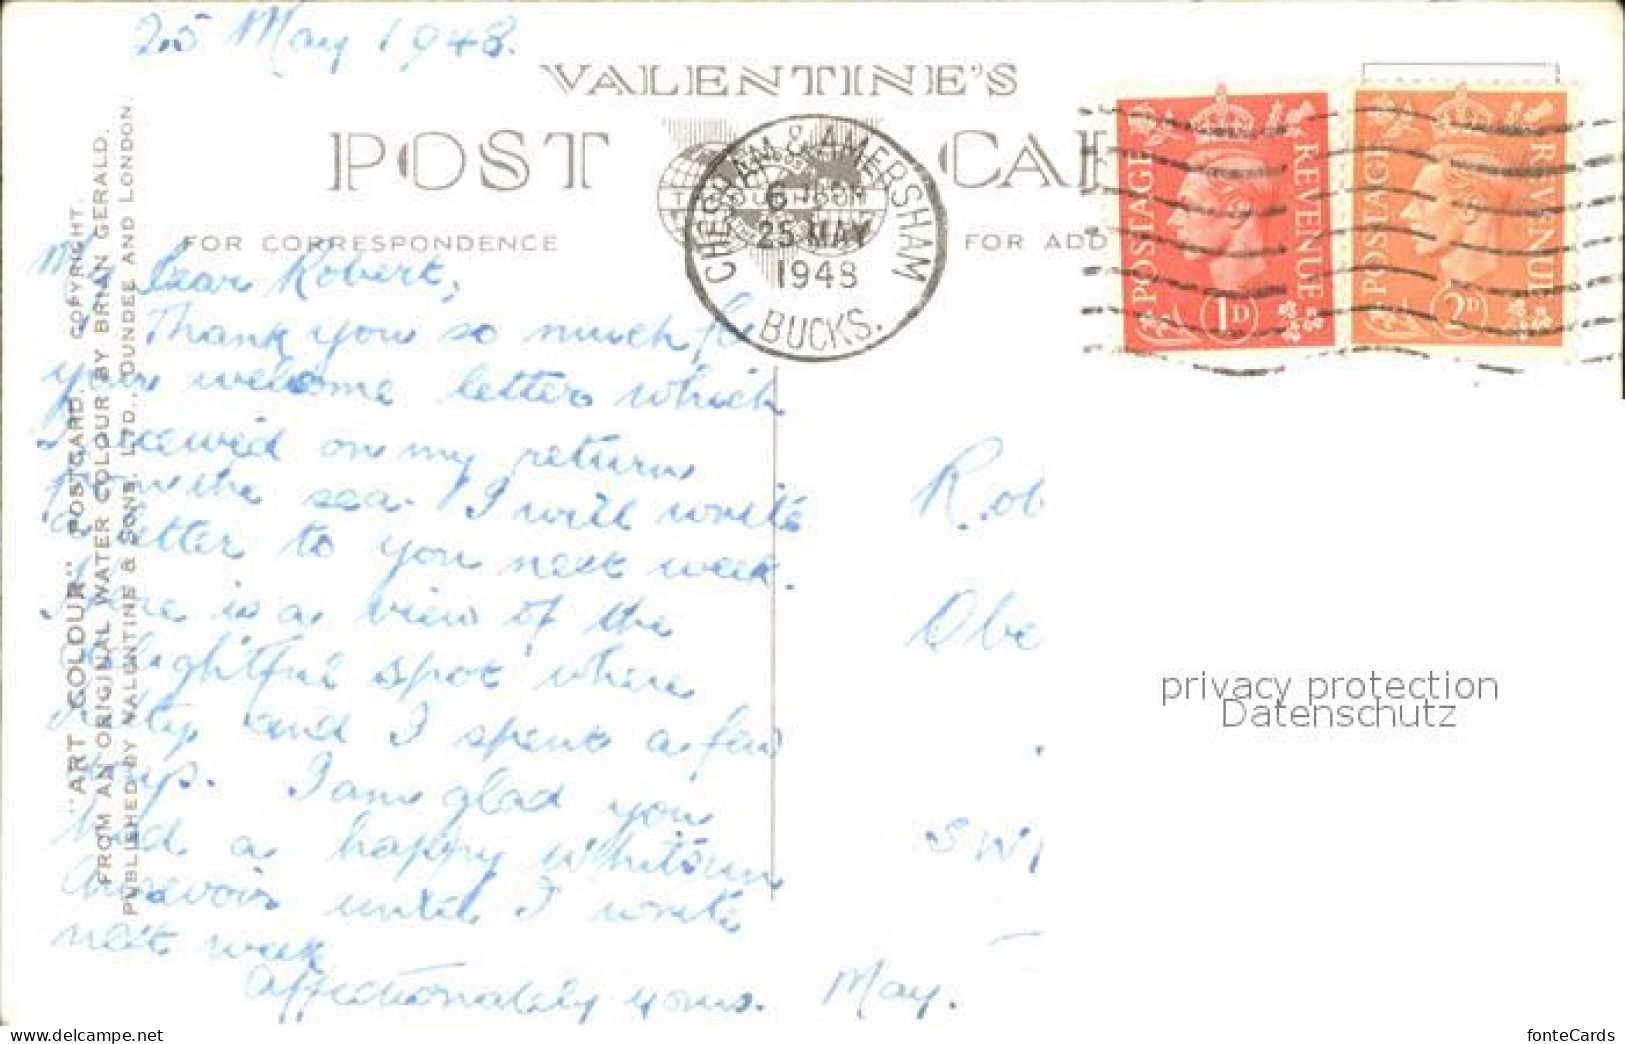 25 May 1948.
VALENTINE'S
POST CAR
FOR CORRESPONDENCE
FOR ADD
CHESHAM & AMERSHAM
6
25 MAY
1948
BUCKS.
POSTAGE REVENUE
1D
POSTAGE REVENUE
2D
My Dear Robert,
Thank you so much for
your welcome letter which
I received on my return
from the sea. I will write
a letter to you next week.
Here is a view of the
delightful spot where
and I spent a few
days. I am glad you
had a happy Whitsun
Aurevoir until I write
next week
Affectionately yours. May.
"ART COLOUR" POSTCARD. COPYRIGHT.
FROM AN ORIGINAL WATER COLOUR BY BRIAN GERALD.
PUBLISHED BY VALENTINE & SONS, LTD., DUNDEE AND LONDON.
Rob
Obe
SWI
privacy protection
Datenschutz
https://www.delcampe.net
fonteCards